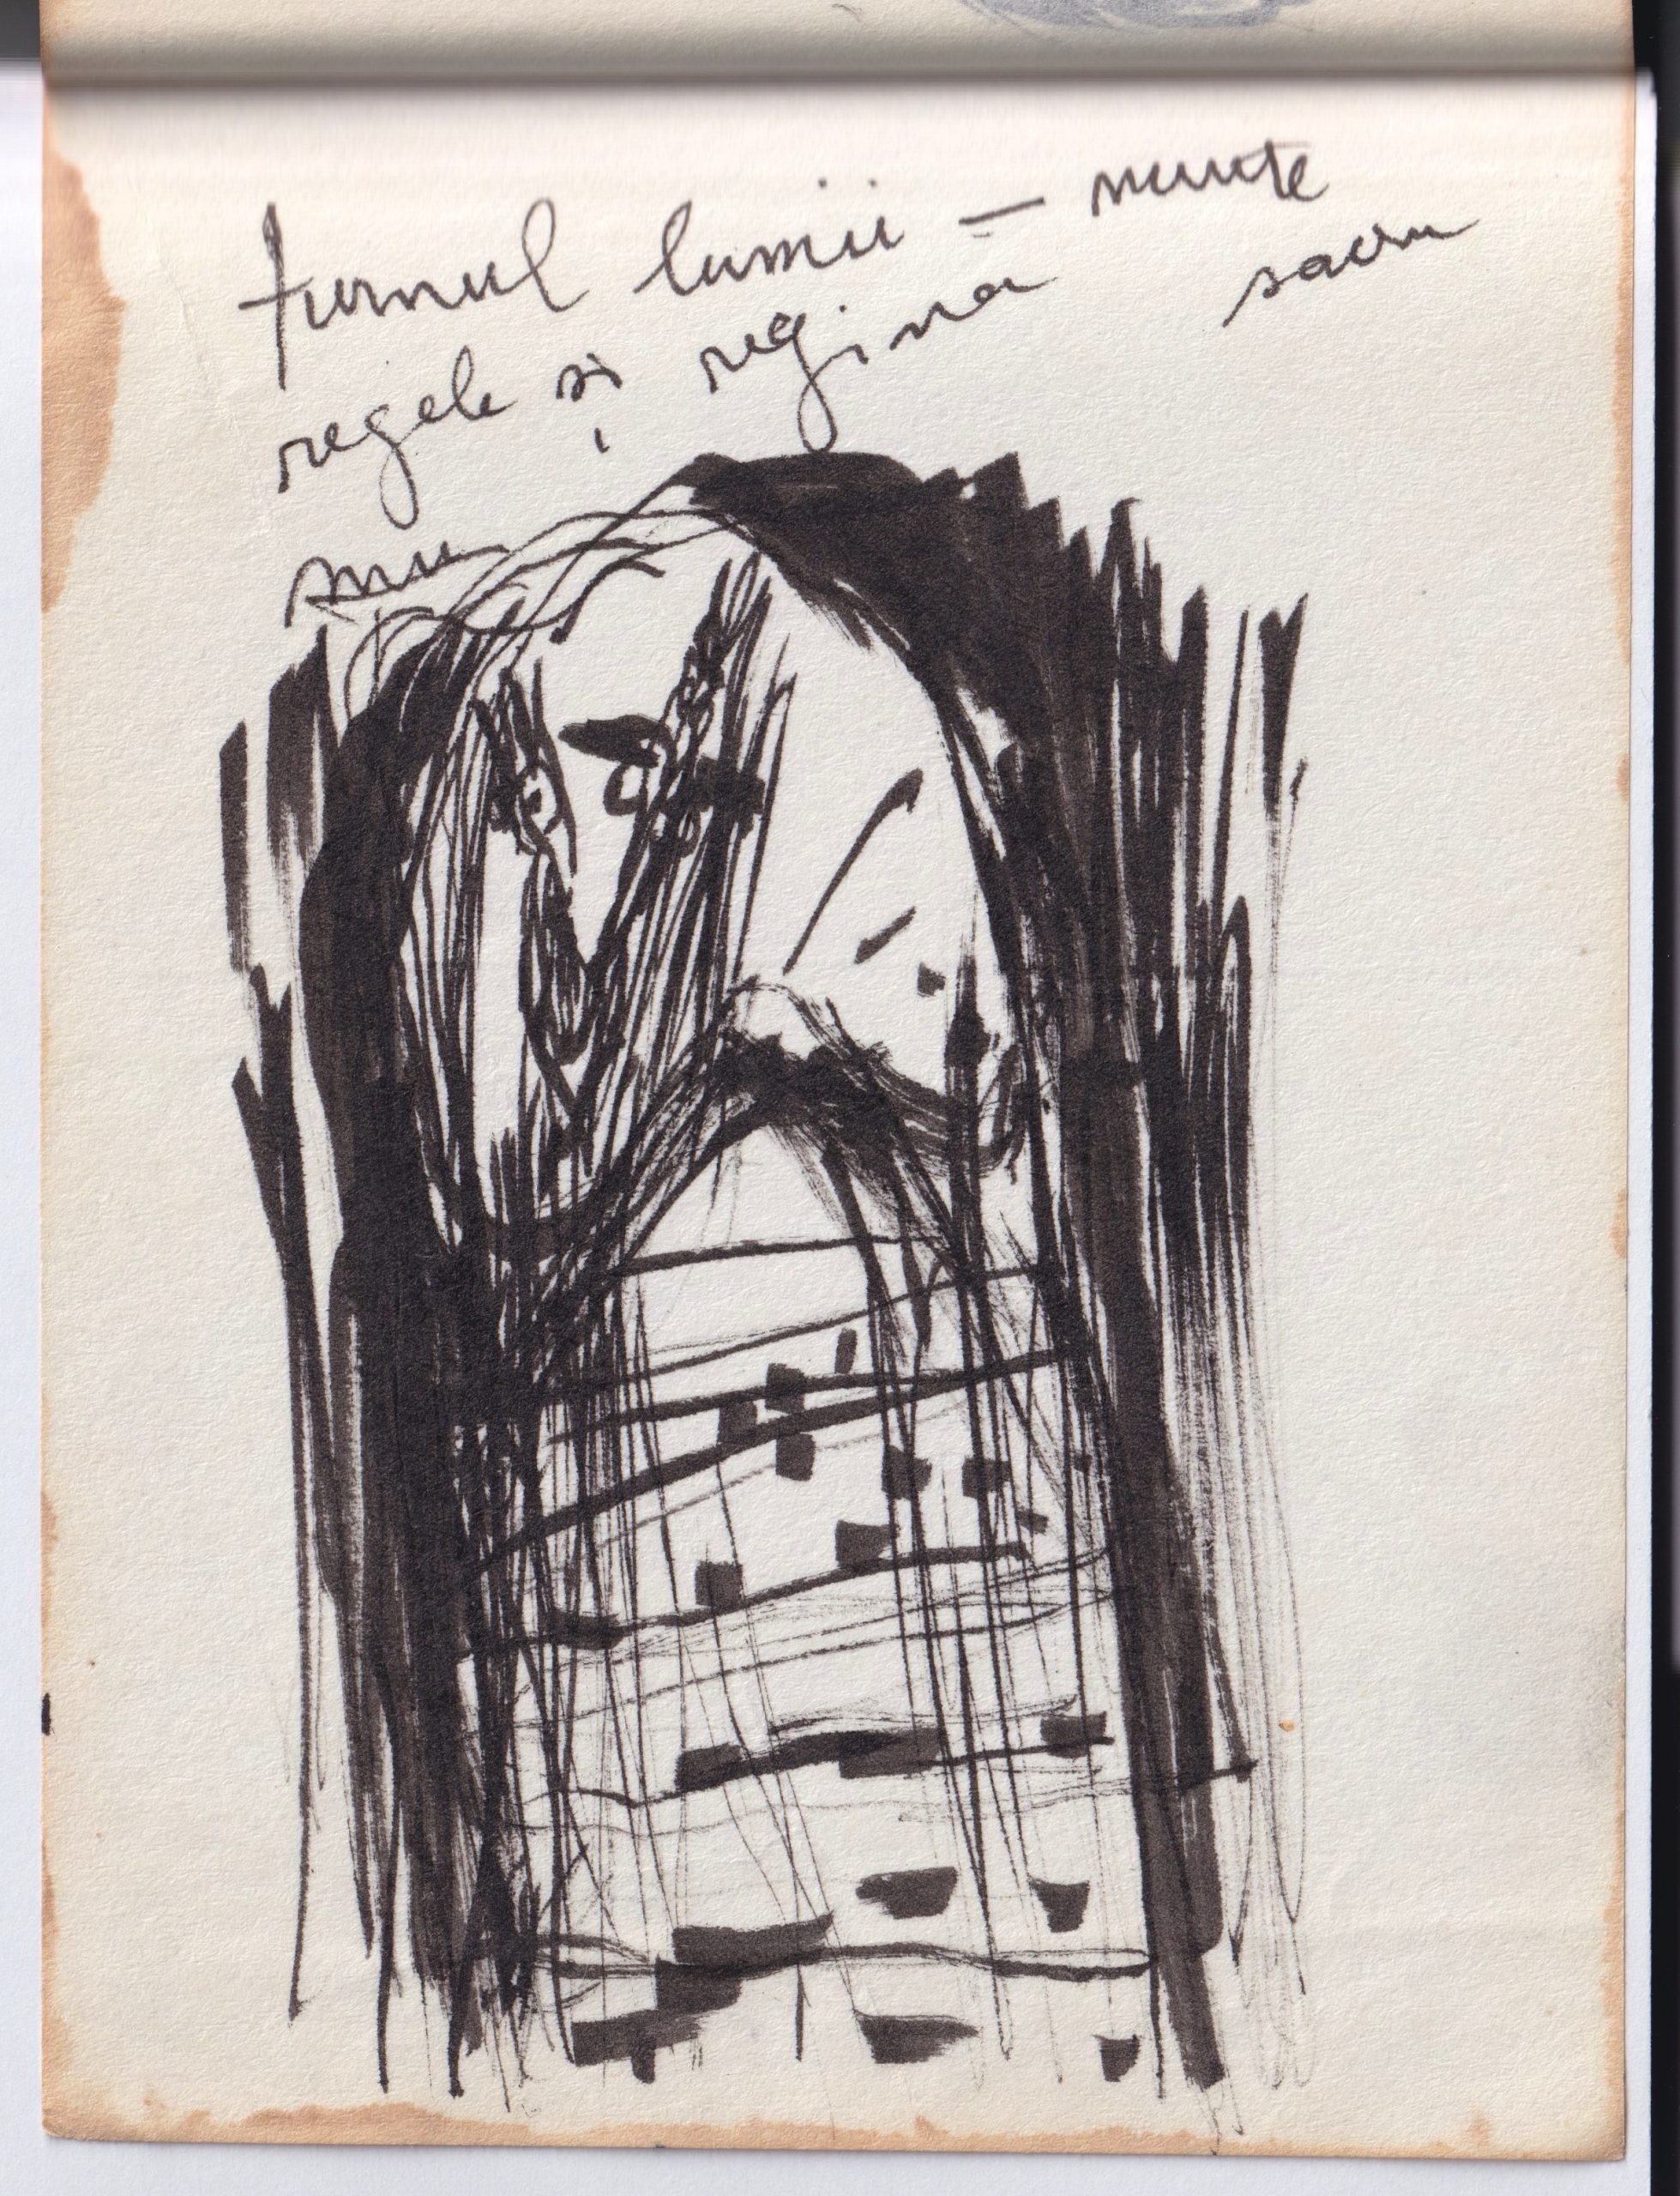 turnul lumii — munte
sacru
regele și regina